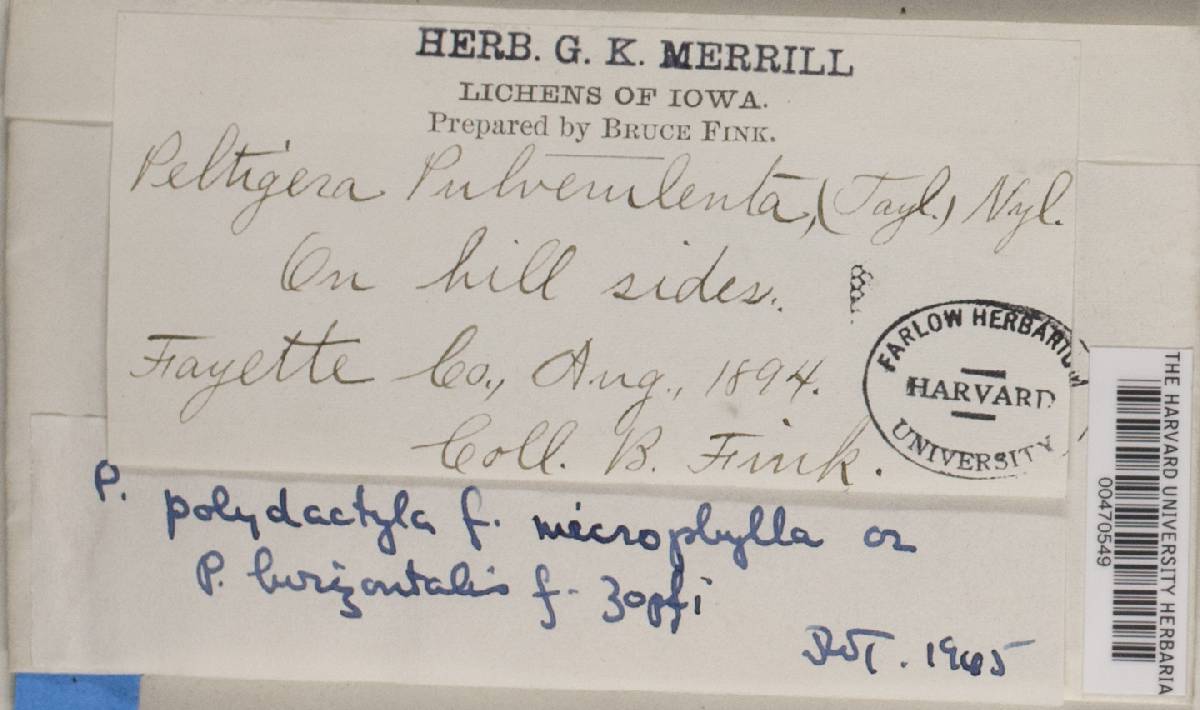 HERB. G. K. MERRILL
LICHENS OF IOWA.
Prepared by BRUCE FINK.
Peltigera Pulverulenta, (Tayl.) Nyl.
On hill sides.
Fayette Co., Aug., 1894.
Coll. B. Fink.
FARLOW HERBARIUM
HARVARD
UNIVERSITY
P. polydactyla f. microphylla or
P. horizontalis f. zopfi
1965
THE HARVARD UNIVERSITY HERBARIA
00470549